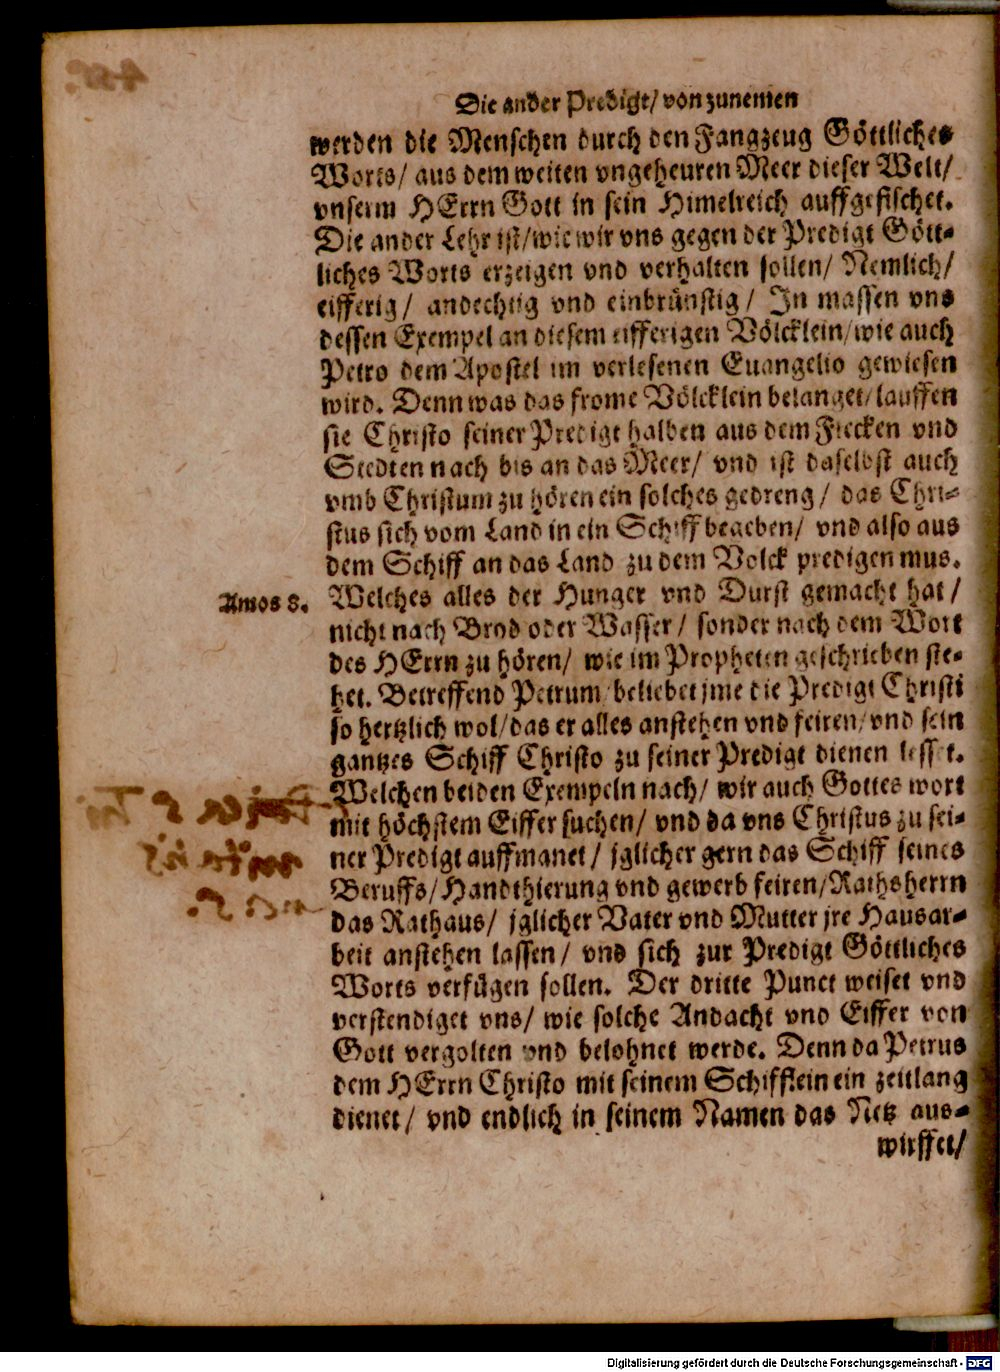 Die ander Predigt/ von zunemen
werden die Menschen durch den Fangzeug Göttliches
Worts/ aus dem weiten vngeheuren Meer dieser Welt/
vnserm HErrn Gott in sein Himelreich auffgefischet.
Die ander Lehr ist/wie wir vns gegen der Predigt Gött-
liches Worts erzeigen vnd verhalten sollen/ Nemlich/
eifferig/ andechtig vnd einbrünstig/ In massen vns
dessen Exempel an diesem eifferigen Völcklein/wie auch
Petro dem Apostel im verlesenen Euangelio gewiesen
wird. Denn was das frome Völcklein belanget/lauffen
sie Christo seiner Predigt halben aus dem Flecken vnd
Stedten nach bis an das Meer/ vnd ist daselbst auch
vmb Christum zu hören ein solches gedreng/ das Chri-
stus sich vom Land in ein Schiff begeben/ vnd also aus
dem Schiff an das Land zu dem Volck predigen mus.
Amos 8. Welches alles der Hunger vnd Durst gemacht hat/
nicht nach Brod oder Wasser/ sonder nach dem Wort
des HErrn zu hören/ wie im Propheten geschrieben ste-
het. Betreffend Petrum/beliebet jme die Predigt Christi
so hertzlich wol/das er alles anstehen vnd feiren/vnd sein
gantzes Schiff Christo zu seiner Predigt dienen lesset.
Welchen beiden Exempeln nach/ wir auch Gottes wort
mit höchstem Eiffer suchen/ vnd da vns Christus zu sei-
ner Predigt auffmanet/ jglicher gern das Schiff seines
Beruffs/Handthierung vnd gewerb feiren/Rathsherrn
das Rathaus/ jglicher Vater vnd Mutter jre Hausar-
beit anstehen lassen/ vnd sich zur Predigt Göttliches
Worts verfügen sollen. Der dritte Punct weiset vnd
verstendiget vns/ wie solche Andacht vnd Eiffer von
Gott vergolten vnd belohnet werde. Denn da Petrus
dem HErrn Christo mit seinem Schifflein ein zeitlang
dienet/ vnd endlich in seinem Namen das Netz aus-
wirffet/
Digitalisierung gefördert durch die Deutsche Forschungsgemeinschaft - DFG